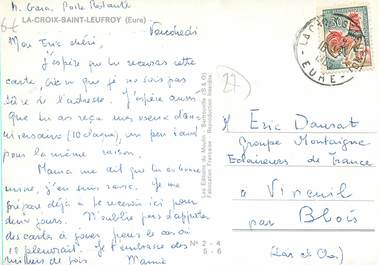 M. Gara. Poste Restante
LA-CROIX-SAINT-LEUFROY (Eure)
6E
Vendredi
Mon Eric chéri,
J'espère que tu recevras cette
carte, bien que je ne sois pas
sûre de l'adresse. J'espère aussi
que tu as reçu mes vœux d'anni-
versaire (10 claque), un peu tard
pour la même raison.
Mama me dit que tu as bonne
mine, j'en suis ravie. Je me
prépare déjà à te recevoir ici pour
deux jours. N'oublie pas d'apporter
des cartes à jouer pour le cas où
il pleuvrait. Je t'embrasse des
milliers de fois
Mamie
27
Les Editions du Marais
Fabrication Française - Reproduction Interdite
N° 2 - 4
5 - 6
EURE
Eric Daurat
Groupe Montaigne
Eclaireurs de France
à Vineuil
par Blois
(Loir et Cher)